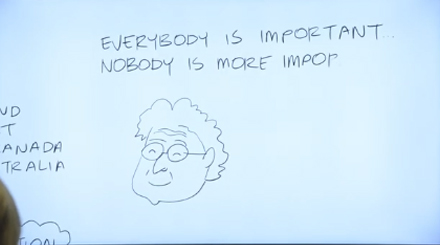 EVERYBODY IS IMPORTANT...
NOBODY IS MORE IMPOR
ND
T
ANADA
TRALIA
TION